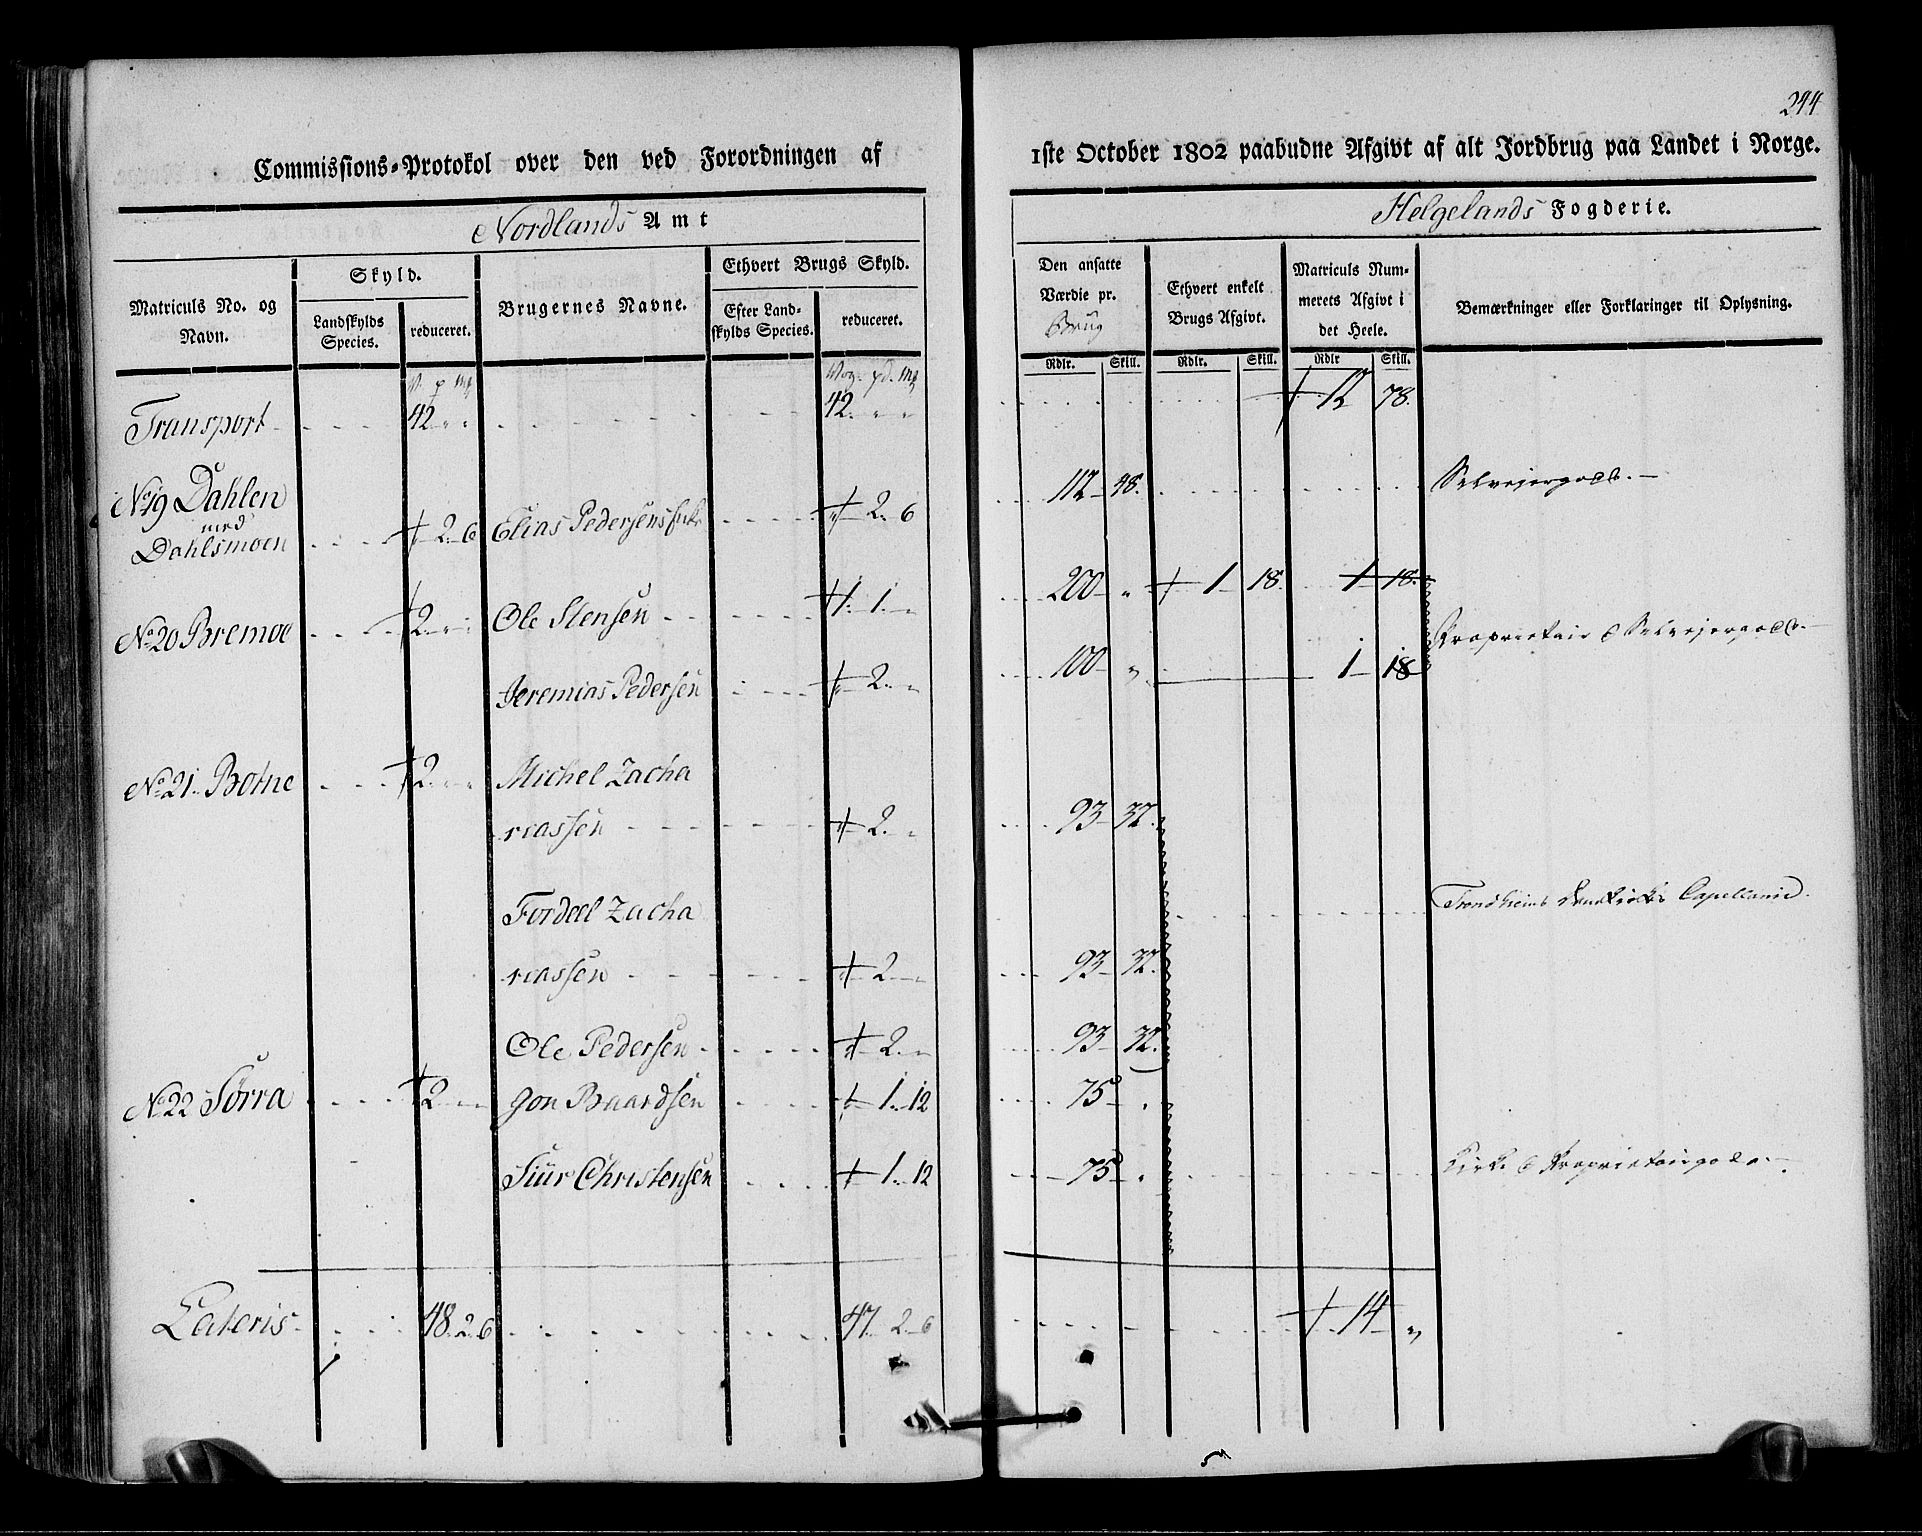 244
Commissions-Protokol over den ved Forordningen af
1ste October 1802 paabudne Afgivt af alt Jordbrug paa Landet i Norge.
Nordlands Amt
Helgelands Fogderie.
Matriculs No. og Navn.
Skyld.
Landskylds Species.
reduceret.
Brugernes Navne.
Ethvert Brugs Skyld.
Efter Landskylds Species.
reduceret.
Den ansatte Værdie pr. Brug
Ethvert enkelt Brugs Afgivt.
Matriculs Nummerets Afgivt i det Heele.
Bemærkninger eller Forklaringer til Oplysning.
Rdlr. Skill. Rdlr. Skill. Rdlr Skill.
V. p mk Vog. pd. mk
Transport 42 " " 42. " " 12 78.
No 19 Dahlen
med
Dahlsmoen 2. 6 Elias Pedersens 2. 6 112 48. Selvejergods.
No 20 Bremoe 2 Ole Stensen 1. 1. " 200 " 1 18. 1 18.
Proprietair & Selvejergods.
Jeremias Pedersen 2. " 100 " 1 18
No 21. Botne 2 " " Michel Zacha
riassen 2. " 93 32.
Fordeel Zacha
Trondhiems Capellanie.
riassen 2 " 93 32.
Ole Pedersen 2. " 93 32.
No 22 Forra 2 Jon Baardsen 1. 12 75 "
Siur Christensen 1. 12 75 " Kirke & Proprietairgods.
Lateris 48. 2. 6 47. 2. 6 14 "